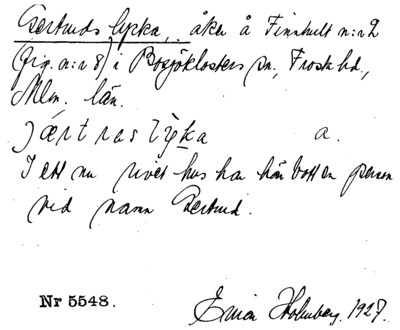 Gertruds lycka, åker å Finnhult n:r 2
(fig. n:r 8) i Bosjöklosters sn., Frosta hd.,
Mlm. län.
järtras lyka a.
I ett nu rivet hus har här bott en person
vid namn Gertrud.
Nr 5548.
Ernin Holmberg. 1927.